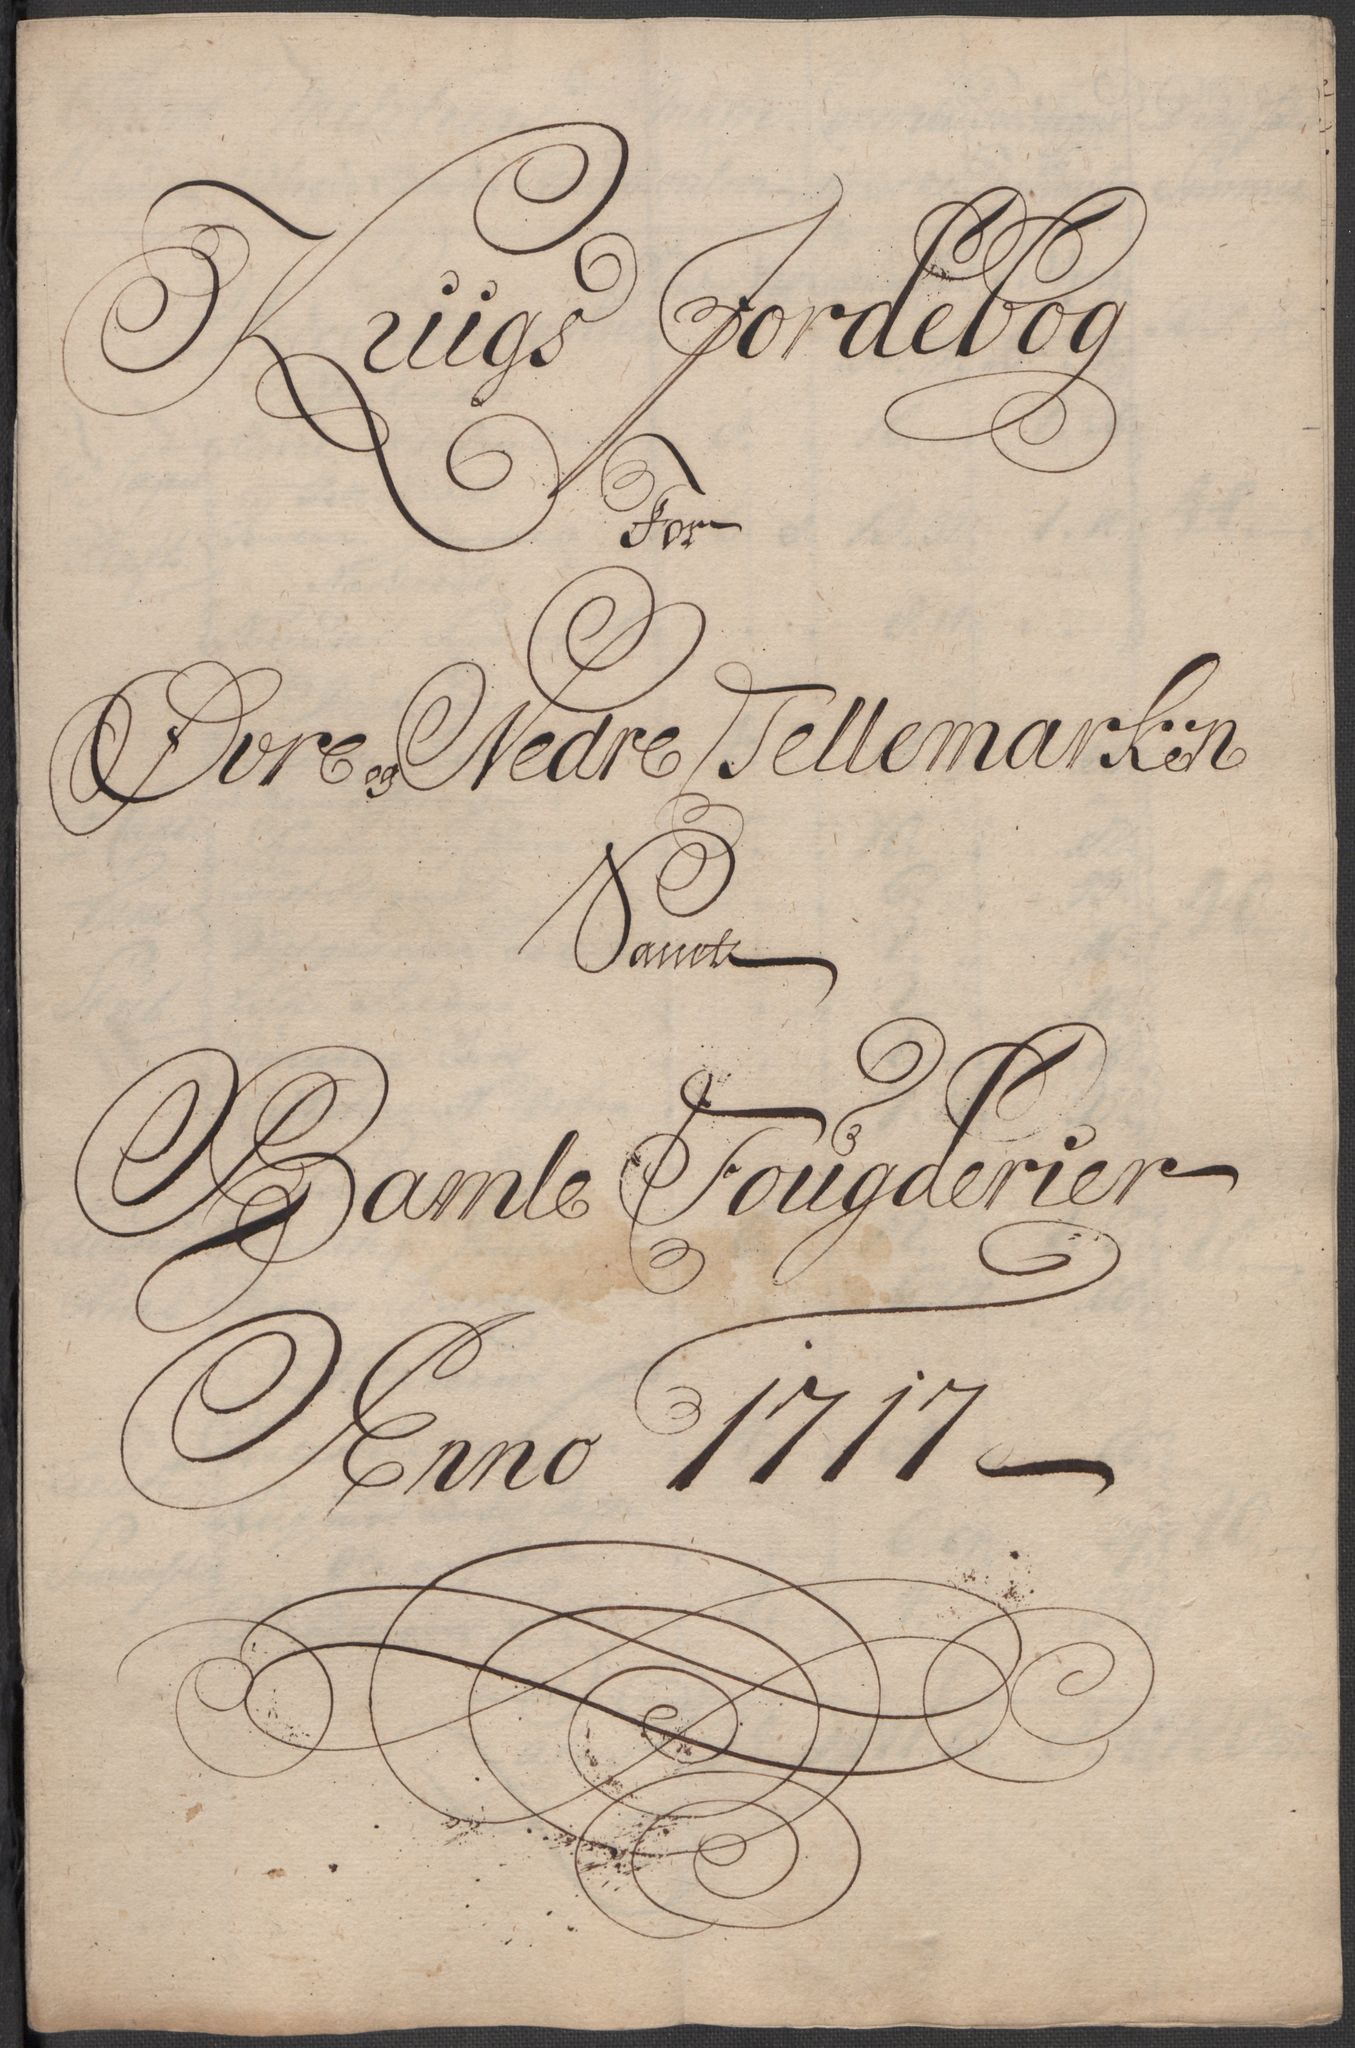 Kriigs Jordebog
For
Øvre og Nedre Tellemarken
Samt
Bamle Fougderier
Anno 1717